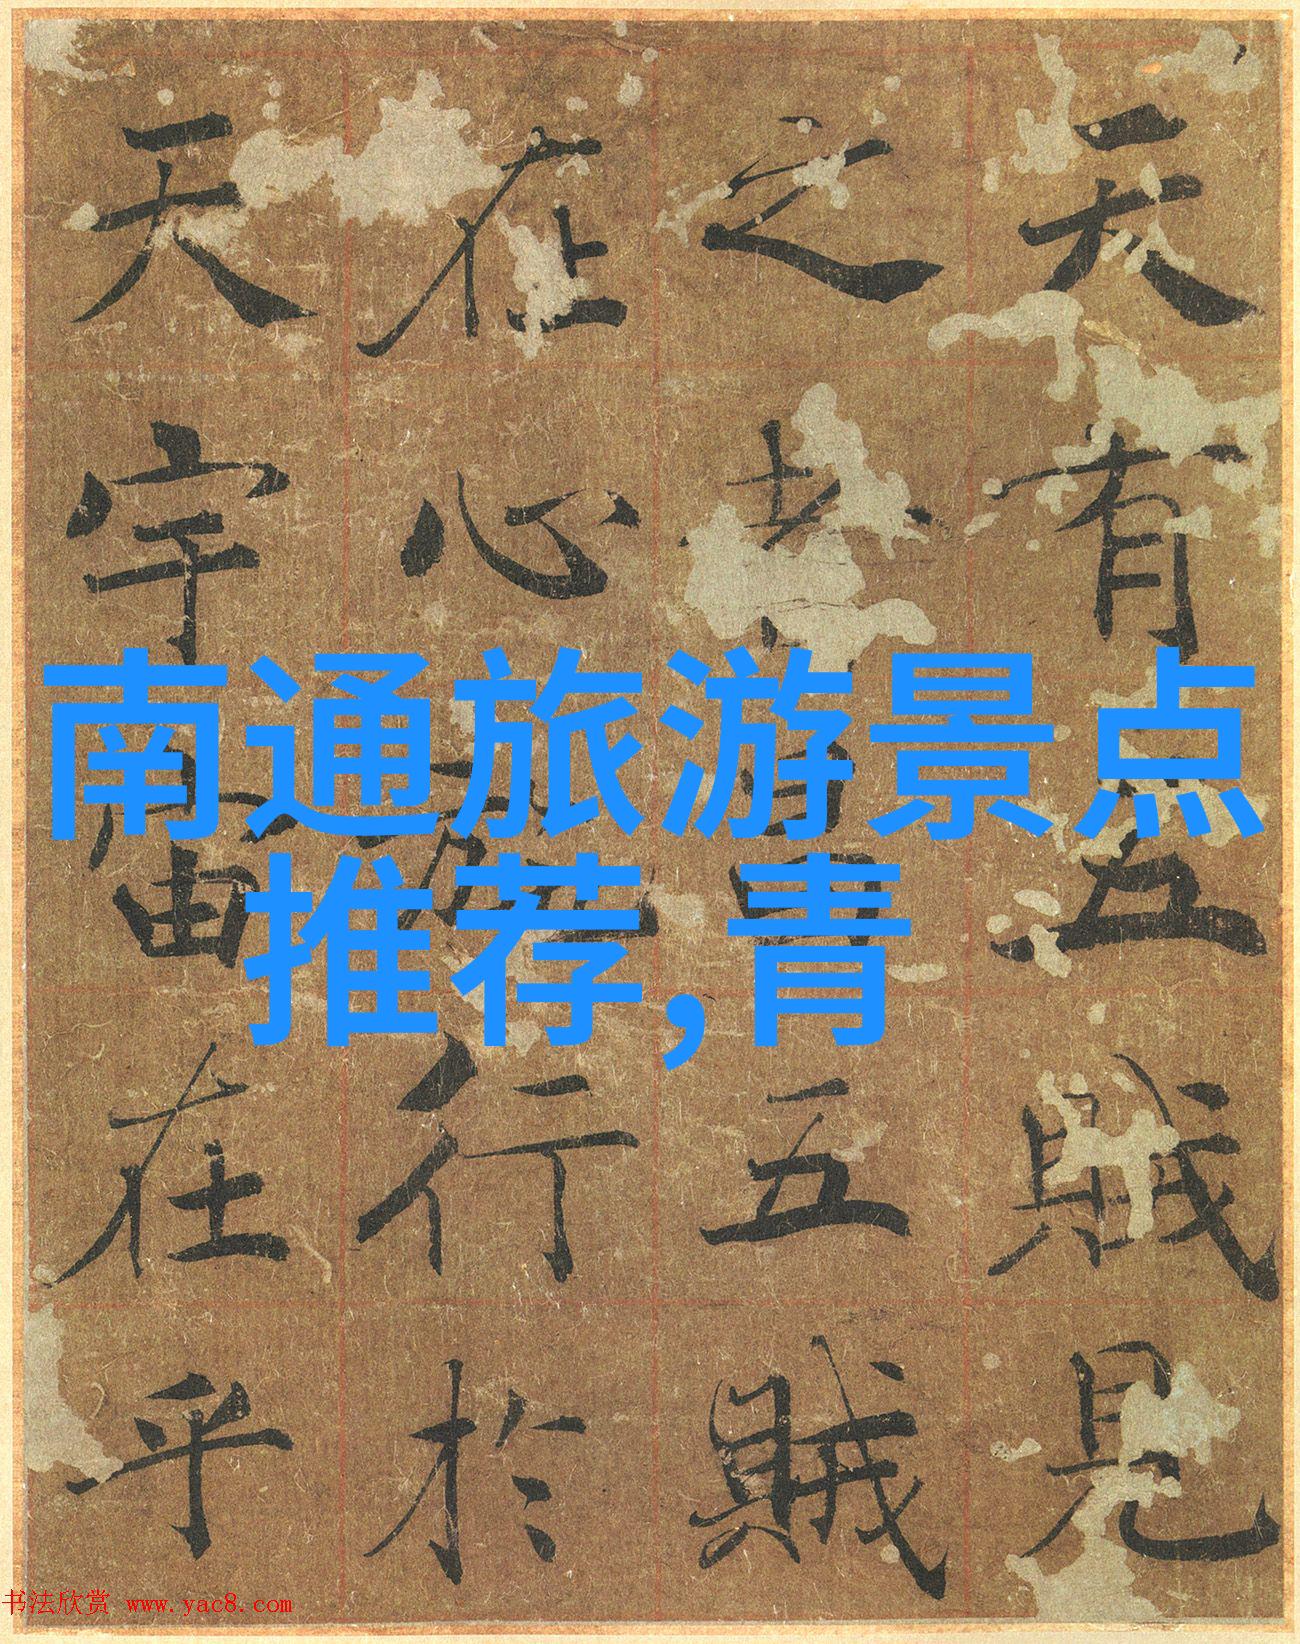 天有五賊見
之者五賊
在心行於
天宇宙在乎
南通旅游景点
推荐,青
书法欣赏 www.yac8.com